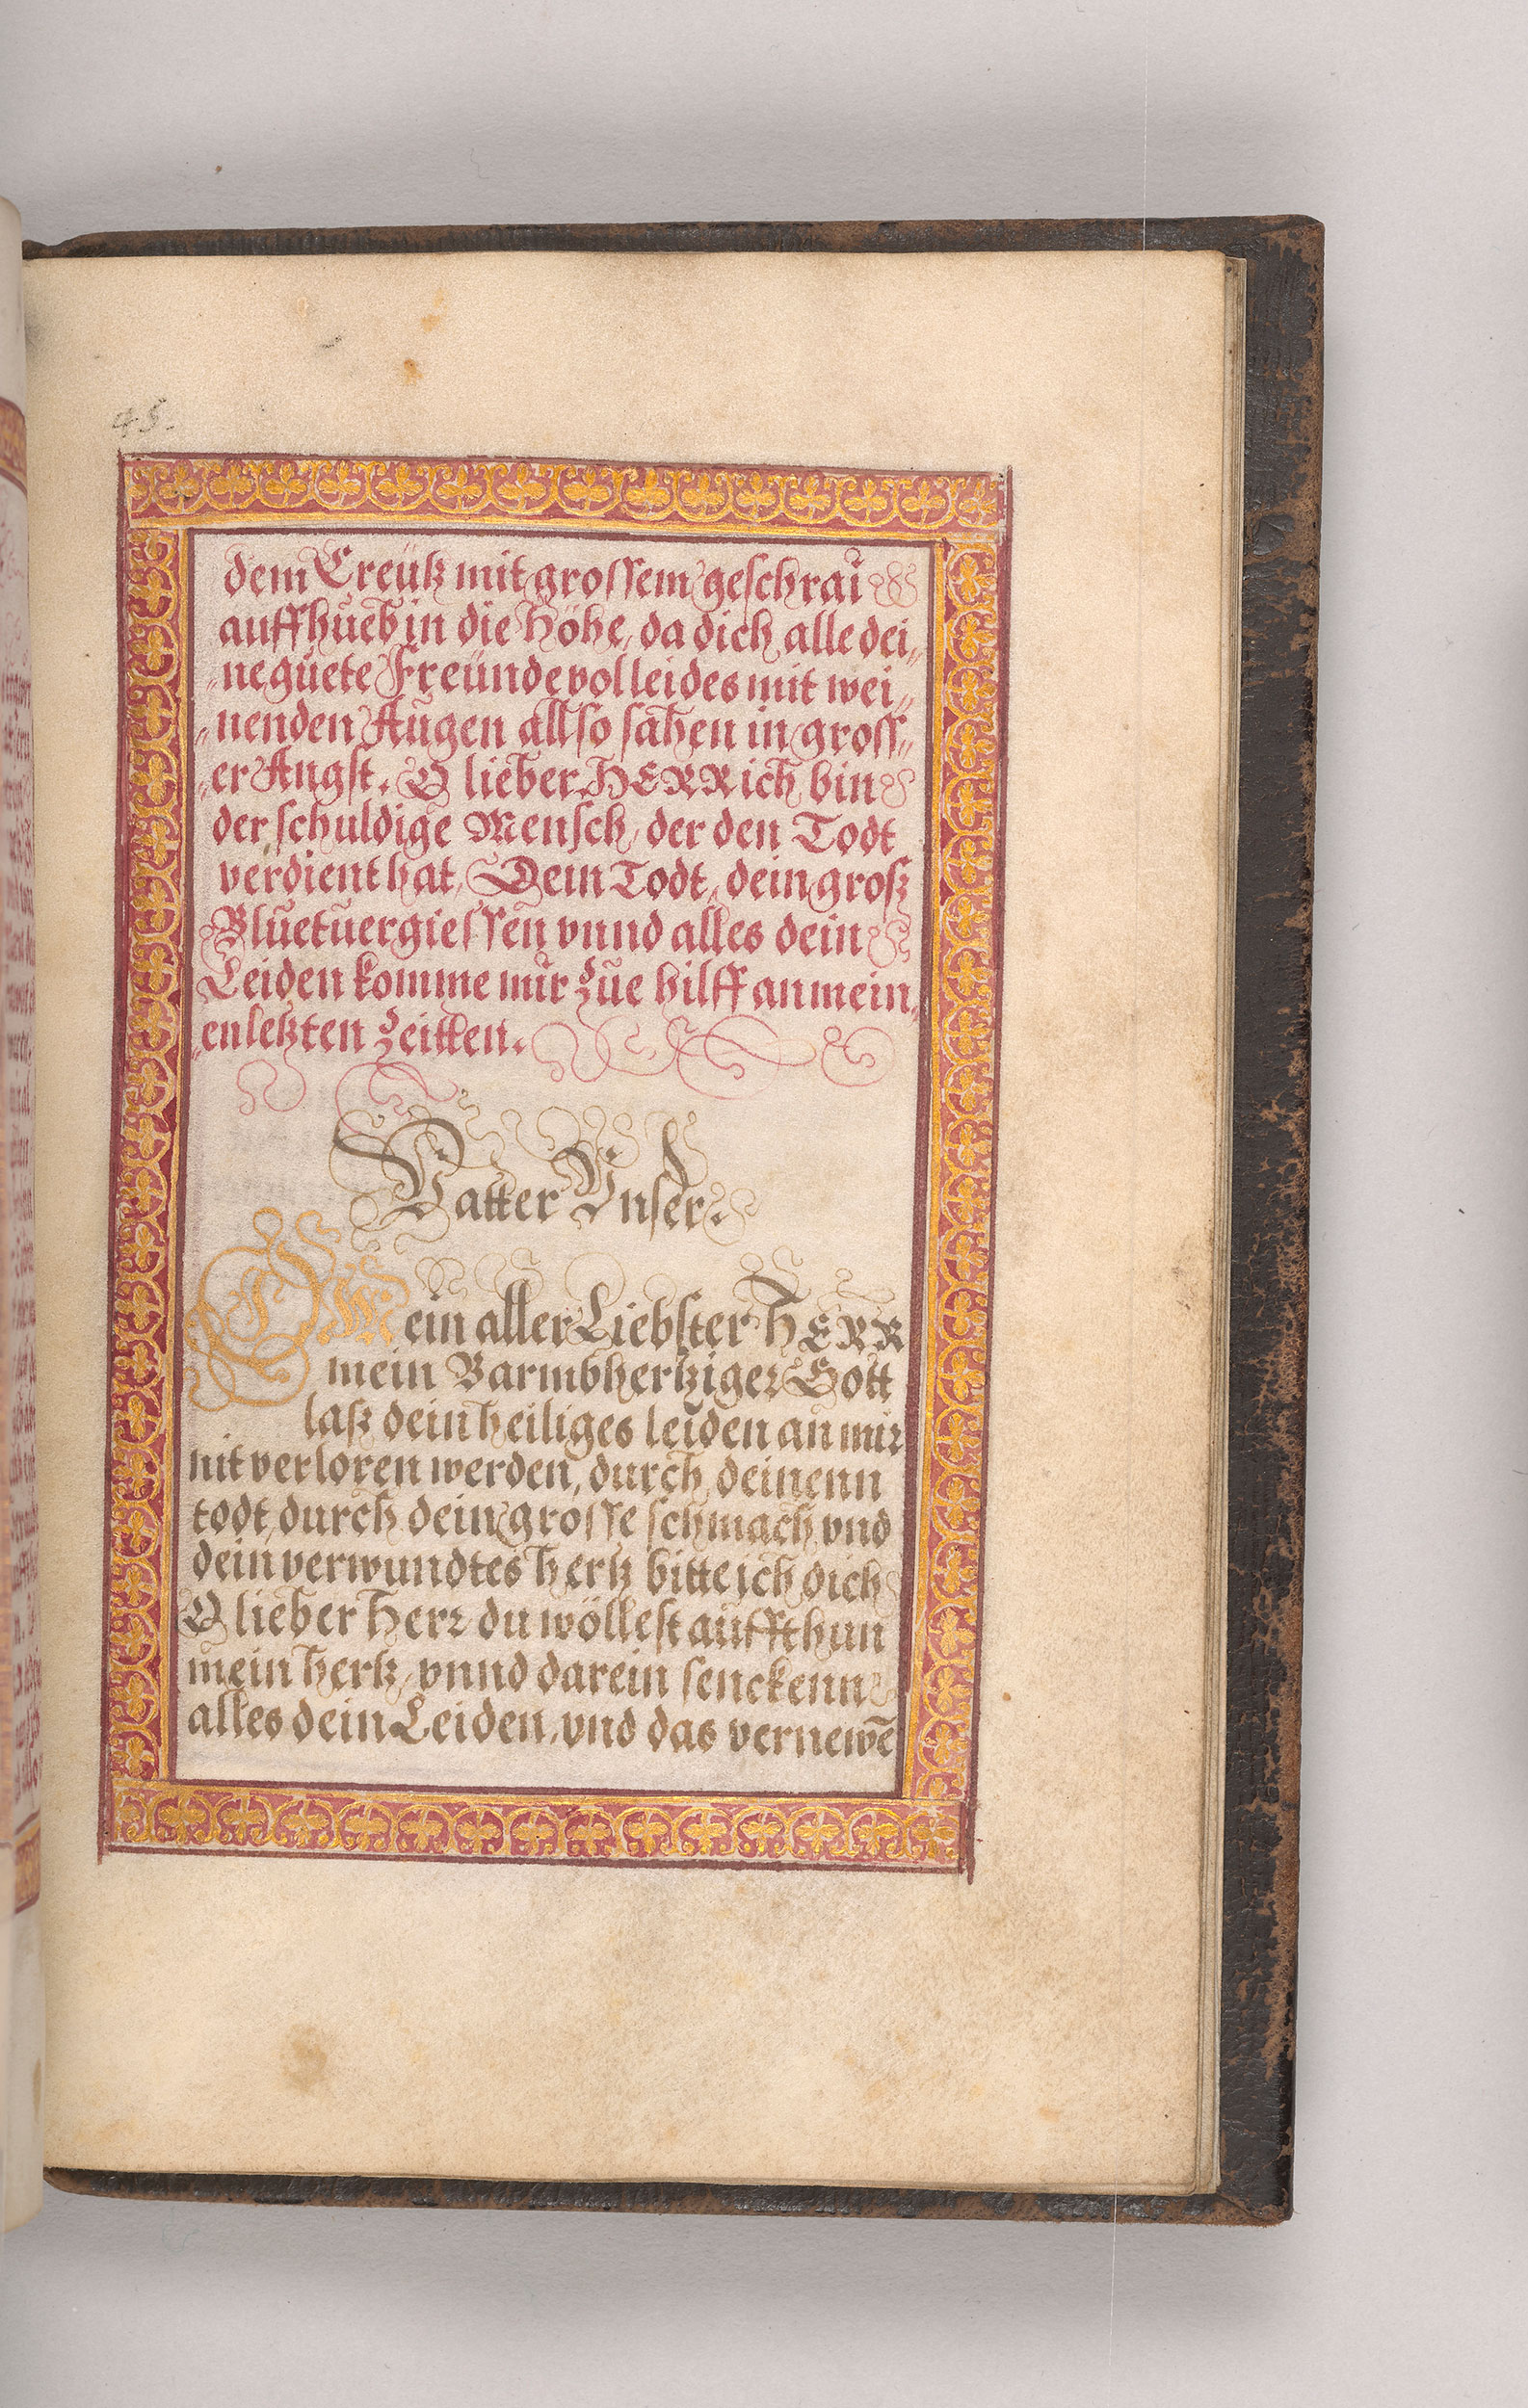 45.
dem Creütz mit grossem geschraÿ
auffhueb in die Höhe, da dich alle dei„
„ne güete Freünde vol leides mit wei„
„nenden Augen allso sahen in gross„
„er Angst. O lieber HERR ich bin
der schuldige Mensch, der den Todt
verdient hat, Dein Todt, dein groß
Bluetuergiessen vnnd alles dein
Leiden komme mir zue hilff an mein„
„en letzten Zeitten.
Vatter Vnser.
O Mein aller Liebster HERR
mein Barmbhertziger Gott
laß dein heiliges leiden an mir
nit verloren werden, durch deinenn
todt, durch dein grosse schmach vnd
dein verwundtes hertz bitte ich dich
O lieber Herr du wöllest auffthun
mein hertz, vnnd darein senckenn
alles dein Leiden, vnd das vernewē